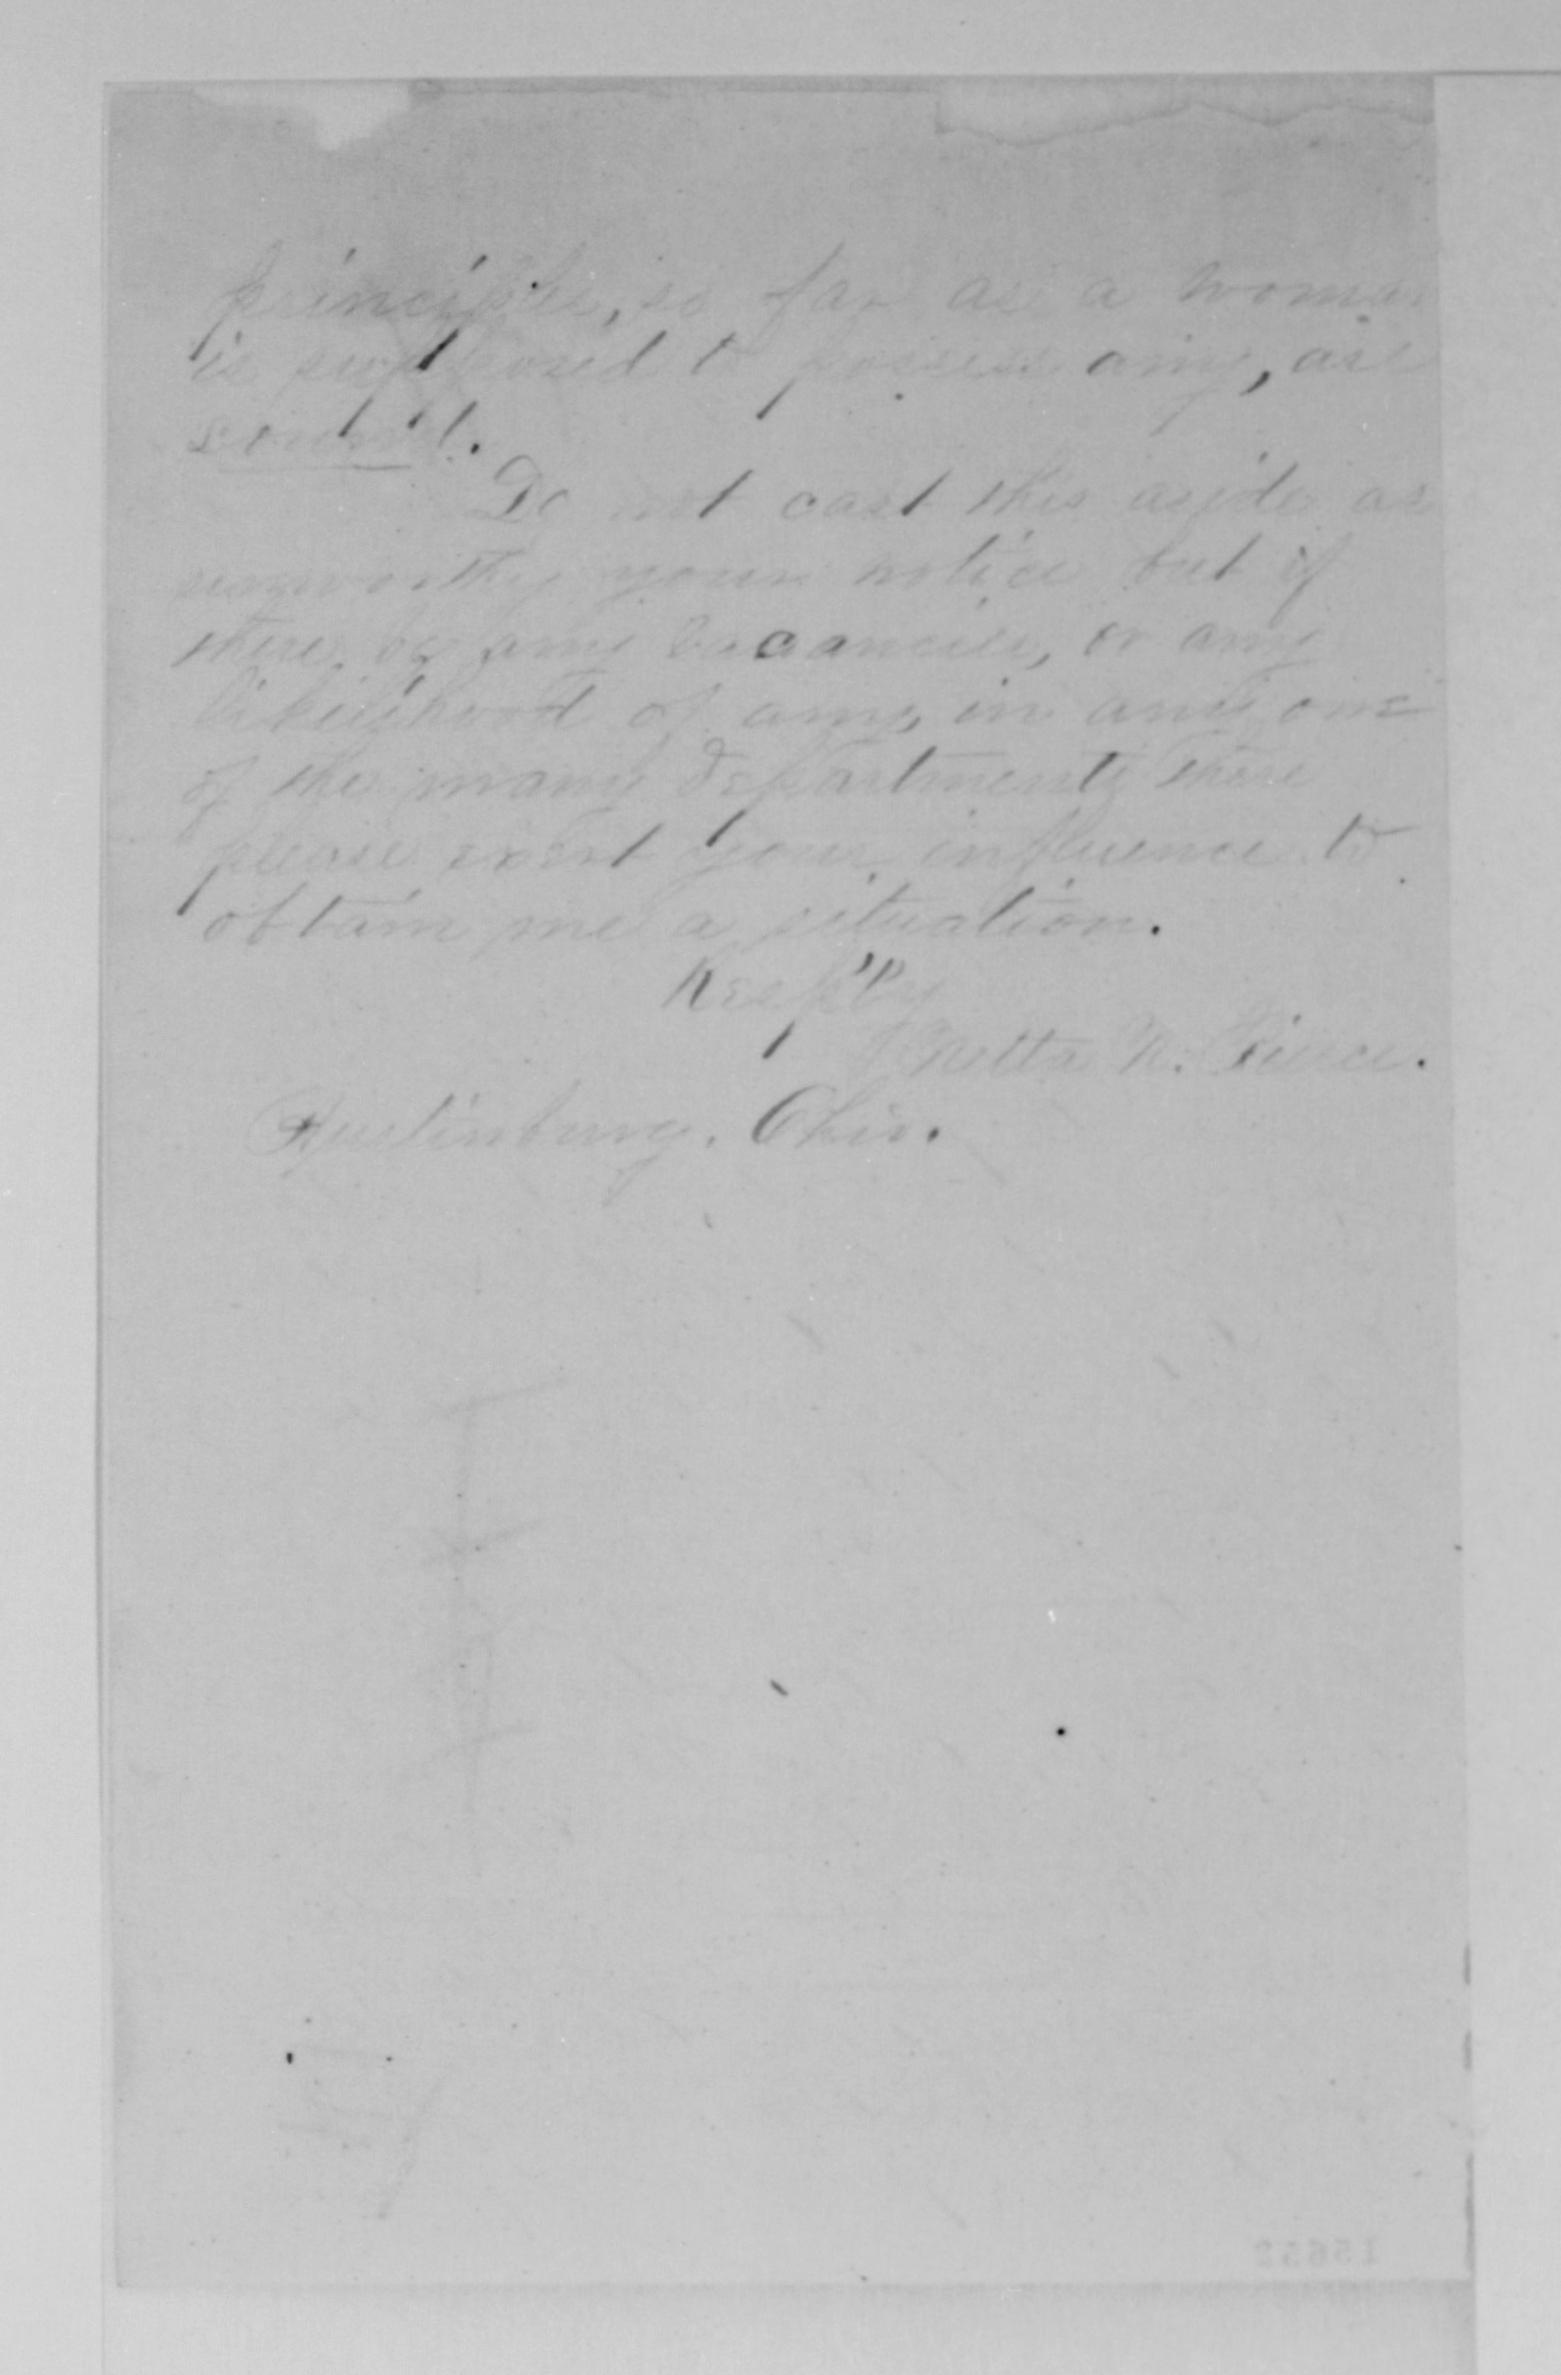 principles, so far as a woman
is supposed to possess any, are
sound.
Do not cast this aside as
unworthy your notice but if
there be any vacancies, or any
likelihood of any, in any one
of the many departments there
please exert your influence to
obtain me a situation.
Resp'ly
Netta N. Pierce.
Austinburg. Ohio.
15652